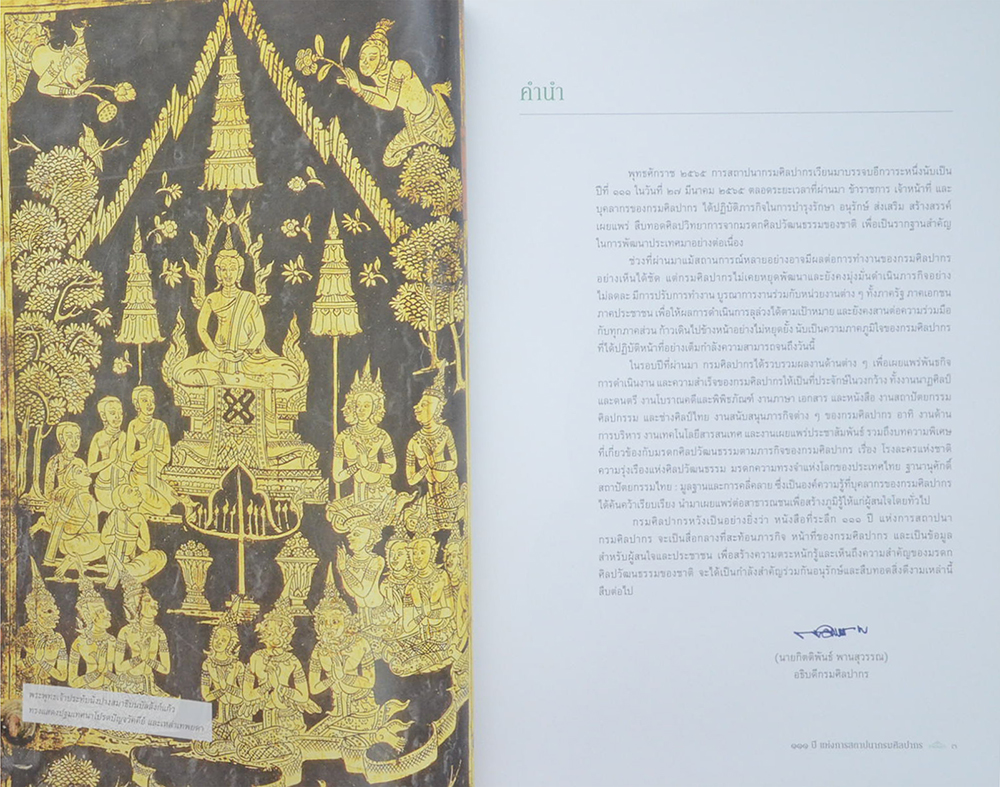 พระพุทธเจ้าประทับนั่งปางสมาธิบนบัลลังก์แก้ว
ทรงแสดงปฐมเทศนาโปรดปัญจวัคคีย์ และเหล่าเทพยดา
คำนำ
พุทธศักราช ๒๕๖๕ การสถาปนากรมศิลปากรเวียนมาบรรจบอีกวาระหนึ่งนับเป็น
ปีที่ ๑๑๑ ในวันที่ ๒๗ มีนาคม ๒๕๖๕ ตลอดระยะเวลาที่ผ่านมา ข้าราชการ เจ้าหน้าที่ และ
บุคลากรของกรมศิลปากร ได้ปฏิบัติภารกิจในการบำรุงรักษา อนุรักษ์ ส่งเสริม สร้างสรรค์
เผยแพร่ สืบทอดศิลปวิทยาการจากมรดกศิลปวัฒนธรรมของชาติ เพื่อเป็นรากฐานสำคัญ
ในการพัฒนาประเทศมาอย่างต่อเนื่อง
ช่วงที่ผ่านมาแม้สถานการณ์หลายอย่างอาจมีผลต่อการทำงานของกรมศิลปากร
อย่างเห็นได้ชัด แต่กรมศิลปากรไม่เคยหยุดพัฒนาและยังคงมุ่งมั่นดำเนินภารกิจอย่าง
ไม่ลดละ มีการปรับการทำงาน บูรณาการงานร่วมกับหน่วยงานต่าง ๆ ทั้งภาครัฐ ภาคเอกชน
ภาคประชาชน เพื่อให้ผลการดำเนินการลุล่วงได้ตามเป้าหมาย และยังคงสานต่อความร่วมมือ
กับทุกภาคส่วน ก้าวเดินไปข้างหน้าอย่างไม่หยุดยั้ง นับเป็นความภาคภูมิใจของกรมศิลปากร
ที่ได้ปฏิบัติหน้าที่อย่างเต็มกำลังความสามารถจนถึงวันนี้
ในรอบปีที่ผ่านมา กรมศิลปากรได้รวบรวมผลงานด้านต่าง ๆ เพื่อเผยแพร่พันธกิจ
การดำเนินงาน และความสำเร็จของกรมศิลปากรให้เป็นที่ประจักษ์ในวงกว้าง ทั้งงานนาฏศิลป์
และดนตรี งานโบราณคดีและพิพิธภัณฑ์ งานภาษา เอกสาร และหนังสือ งานสถาปัตยกรรม
ศิลปกรรม และช่างศิลป์ไทย งานสนับสนุนภารกิจต่าง ๆ ของกรมศิลปากร อาทิ งานด้าน
การบริหาร งานเทคโนโลยีสารสนเทศ และงานเผยแพร่ประชาสัมพันธ์ รวมถึงบทความพิเศษ
ที่เกี่ยวข้องกับมรดกศิลปวัฒนธรรมตามภารกิจของกรมศิลปากร เรื่อง โรงละครแห่งชาติ
ความรุ่งเรืองแห่งศิลปวัฒนธรรม มรดกความทรงจำแห่งโลกของประเทศไทย ฐานานุศักดิ์
สถาปัตยกรรมไทย : มูลฐานและการคลี่คลาย ซึ่งเป็นองค์ความรู้ที่บุคลากรของกรมศิลปากร
ได้ค้นคว้าเรียบเรียง นำมาเผยแพร่ต่อสาธารณชนเพื่อสร้างภูมิรู้ให้แก่ผู้สนใจโดยทั่วไป
กรมศิลปากรหวังเป็นอย่างยิ่งว่า หนังสือที่ระลึก ๑๑๑ ปี แห่งการสถาปนา
กรมศิลปากร จะเป็นสื่อกลางที่สะท้อนภารกิจ หน้าที่ของกรมศิลปากร และเป็นข้อมูล
สำหรับผู้สนใจและประชาชน เพื่อสร้างความตระหนักรู้และเห็นถึงความสำคัญของมรดก
ศิลปวัฒนธรรมของชาติ จะได้เป็นกำลังสำคัญร่วมกันอนุรักษ์และสืบทอดสิ่งดีงามเหล่านี้
สืบต่อไป
(นายกิตติพันธ์ พานสุวรรณ)
อธิบดีกรมศิลปากร
๑๑๑ ปี แห่งการสถาปนากรมศิลปากร ๓